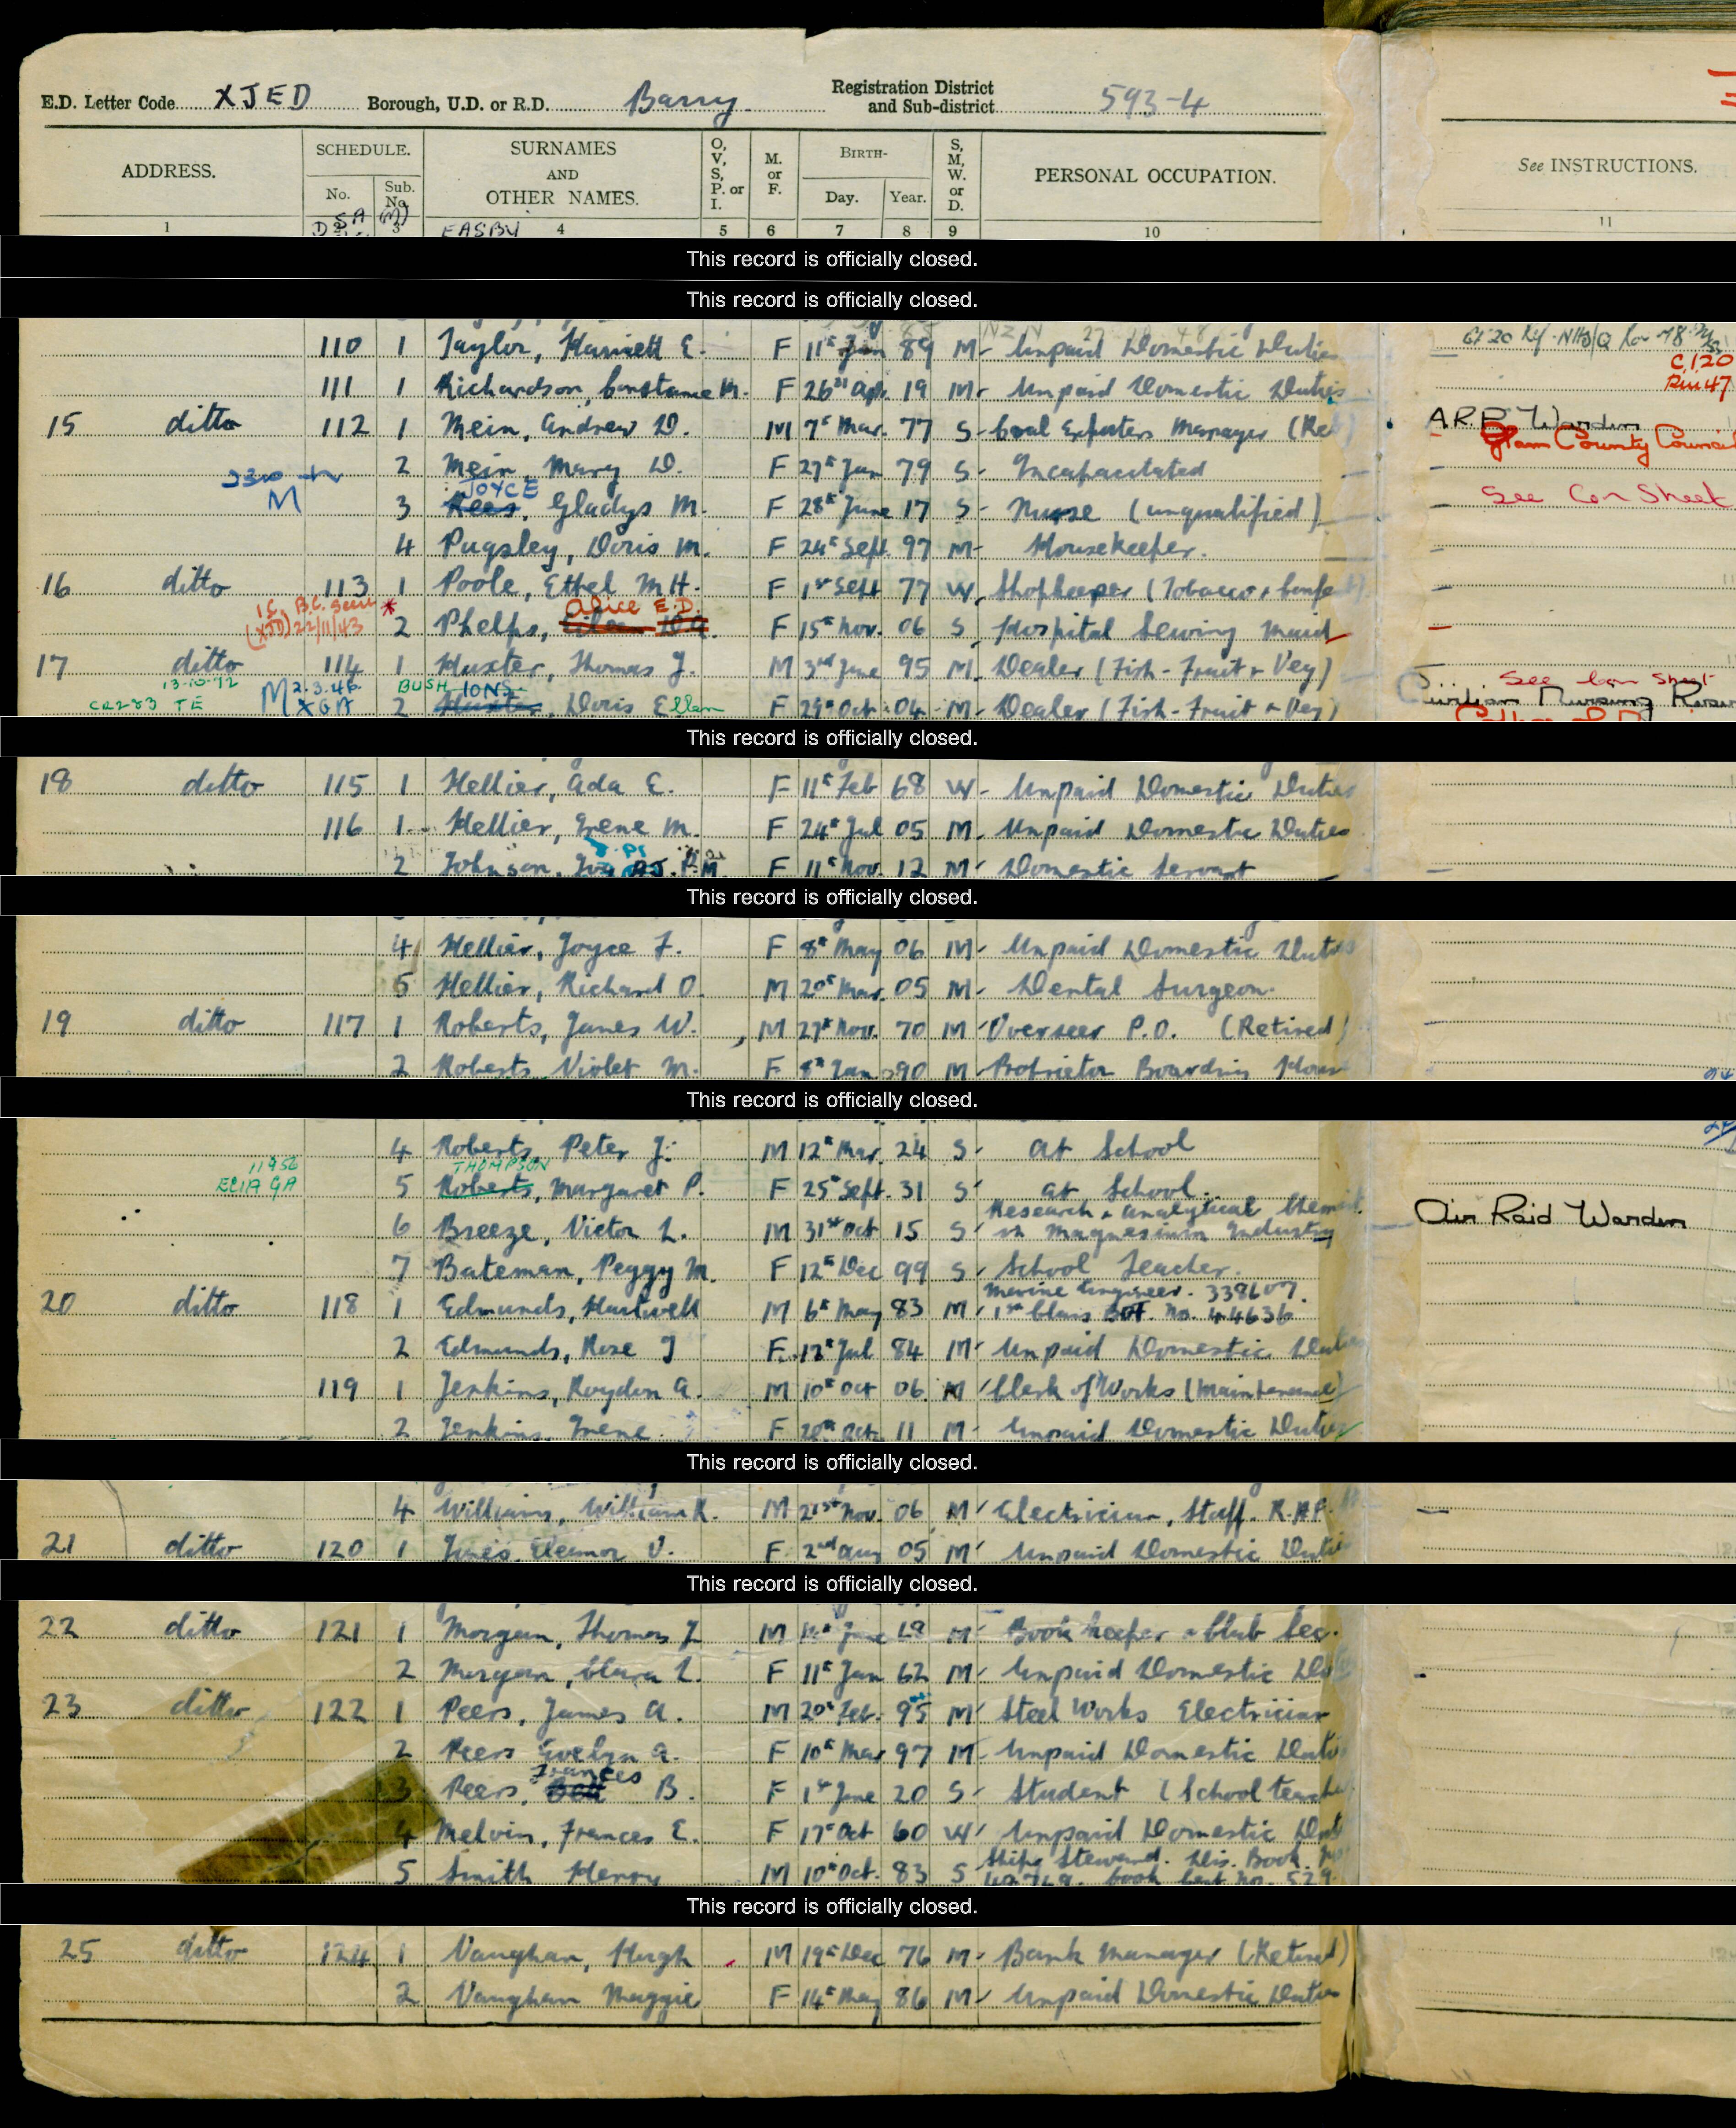 E.D. Letter Code XJED Borough, U.D. or R.D. Barry Registration District and Sub-district 593-4
ADDRESS. SCHEDULE. No. Sub. No. SURNAMES AND OTHER NAMES. O, V, S, P. or I. M. or F. BIRTH- Day. Year. S, M, W. or D. PERSONAL OCCUPATION. See INSTRUCTIONS.
SA (M)
1 3 EASBY 4 5 6 7 8 9 10 11
This record is officially closed.
This record is officially closed.
110 1 Taylor, Harriett E. F 11th Jan 89 M Unpaid Domestic Duties
C.120
111 1 Richardson, Constance M. F 26th Apr. 19 M Unpaid Domestic Duties
15 ditto 112 1 Mein, Andrew D. M 7th Mar. 77 S Coal Exporters Manager (Ret) A.R.P. Warden
Glam County Council
2 Mein, Mary D. F 27th Jan 79 S Incapacitated
JOYCE
M 3 Rees, Gladys M. F 28th June 17 S Nurse (unqualified) See Con Sheet
4 Pugsley, Doris M. F 24th Sept 97 M Housekeeper.
16 ditto 113 1 Poole, Ethel M H. F 1st Sept 77 W Shopkeeper (Tobacco & Confect)
Alice E.D.
(XJD) 22/11/43 * 2 Phelps, F 15th Nov. 06 S Hospital Sewing Maid
17 ditto 114 1 Huxter, Thomas J. M 3rd June 95 M Dealer (Fish-Fruit & Veg)
13-10-72 M 2.3.46 BUSH IONS See Con Sheet
CR283 TE XGA 2 Huxter, Doris Ellen F 29th Oct 04 M Dealer (Fish-Fruit & Veg) Civilian Nursing Reser
This record is officially closed.
18 ditto 115 1 Hellier, Ada E. F 11th Feb 68 W Unpaid Domestic Duties
116 1 Hellier, Irene M. F 24th Jul 05 M Unpaid Domestic Duties
2 Johnson, F 11th Nov. 12 M Domestic Servant
This record is officially closed.
4 Hellier, Joyce F. F 8th May 06 M Unpaid Domestic Duties
5 Hellier, Richard O. M 20th Mar. 05 M Dental Surgeon.
19 ditto 117 1 Roberts, James W. M 27th Nov. 70 M Overseer P.O. (Retired)
2 Roberts Violet M. F 8th Jan 90 M Proprietor Boarding House
This record is officially closed.
4 Roberts, Peter J. M 12th Mar. 24 S At School
11956 THOMPSON
ECIA GA 5 Roberts, Margaret P. F 25th Sept. 31 S At School.
Research & Analytical Chemist
6 Breeze, Victor L. M 31st Oct 15 S in Magnesium Industry Air Raid Warden
7 Bateman, Peggy M. F 12th Dec 99 S School Teacher.
Marine Engineer. 338607.
20 ditto 118 1 Edmunds, Hartwell M 6th May 83 M 1st Class BOT. No. 44636
2 Edmunds, Rose J F 12th Jul 84 M Unpaid Domestic Duties
119 1 Jenkins, Roydon A. M 10th Oct 06 M Clerk of Works (Maintenance)
2 Jenkins, Irene. F 20th Oct. 11 M Unpaid Domestic Duties
This record is officially closed.
4 Williams, William R. M 21st Nov. 06 M Electrician, Staff. R.A.F.
21 ditto 120 1 Jones, Eleanor V. F 2nd Aug 05 M Unpaid Domestic Duties
This record is officially closed.
22 ditto 121 1 Morgan, Thomas J M June M Book keeper & Club Sec.
2 Morgan, Clara L. F 11th Jan 62 M Unpaid Domestic
23 ditto 122 1 Peers, James A. M 20th Feb. 95 M Steel Works Electrician
2 Peers Evelyn A. F 10th Mar 97 M Unpaid Domestic Duties
Frances
3 Peers, B. F 1st June 20 S Student (School teacher
4 Melvin, Frances E. F 17th Oct 60 W Unpaid Domestic
Ships Steward. Dis. Book
5 Smith Henry M 10th Oct. 83 S book cert No. 529
This record is officially closed.
25 ditto 124 1 Vaughan, Hugh M 19th Dec 76 M Bank Manager (Retired)
2 Vaughan Maggie F 14th May 86 M Unpaid Domestic Duties